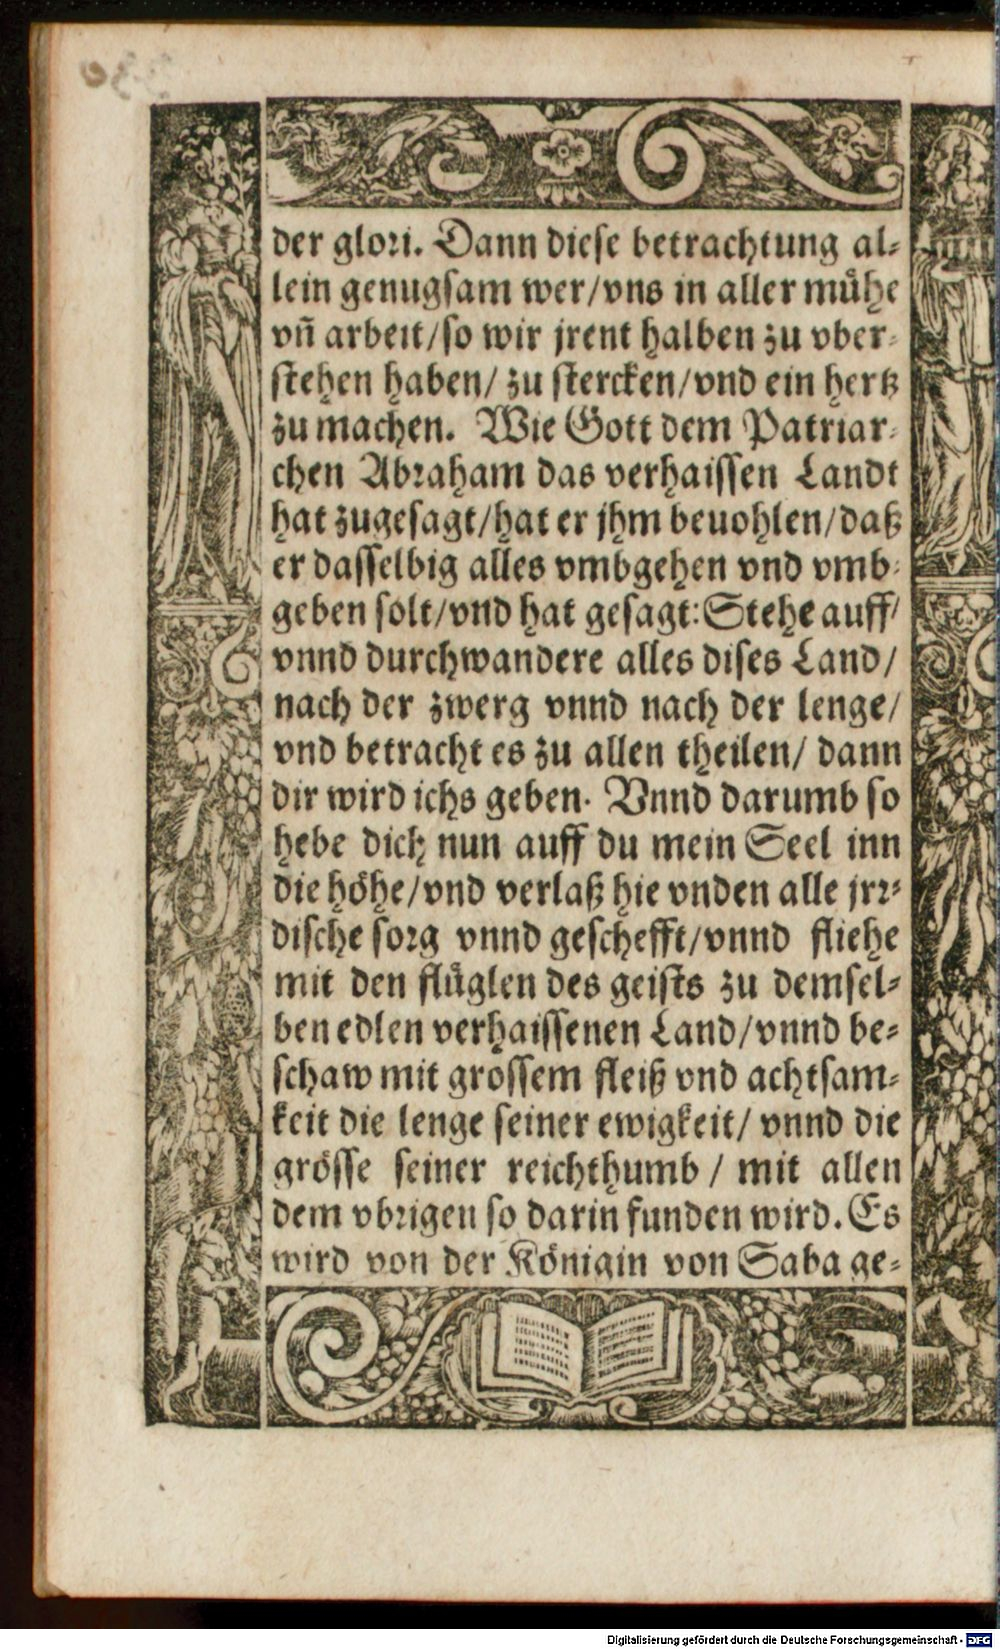 der glori. Dann diese betrachtung al-
lein genugsam wer/vns in aller mühe
vñ arbeit/so wir jrent halben zu vber-
stehen haben/ zu stercken/vnd ein hertz
zu machen. Wie Gott dem Patriar-
chen Abraham das verhaissen Landt
hat zugesagt/hat er jhm beuohlen/daß
er dasselbig alles vmbgehen vnd vmb-
geben solt/vnd hat gesagt: Stehe auff/
vnnd durchwandere alles dises Land/
nach der zwerg vnnd nach der lenge/
vnd betracht es zu allen theilen/ dann
dir wird ichs geben. Vnnd darumb so
hebe dich nun auff du mein Seel inn
die höhe/vnd verlaß hie vnden alle jrr-
dische sorg vnnd geschefft/vnnd fliehe
mit den flüglen des geists zu demsel-
ben edlen verhaissenen Land/vnnd be-
schaw mit grossem fleiß vnd achtsam-
keit die lenge seiner ewigkeit/ vnnd die
grösse seiner reichthumb / mit allen
dem vbrigen so darin funden wird. Es
wird von der Königin von Saba ge-
Digitalisierung gefördert durch die Deutsche Forschungsgemeinschaft - DFG